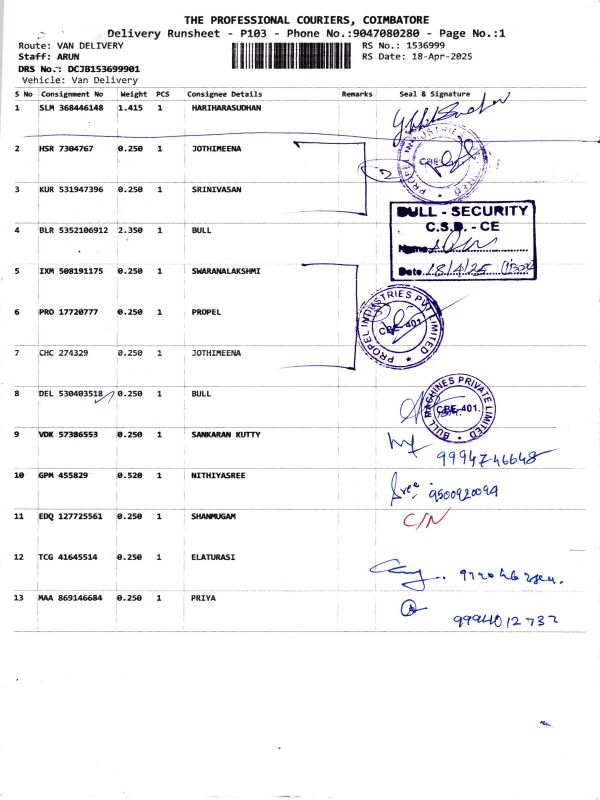 THE PROFESSIONAL COURIERS, COIMBATORE
Delivery Runsheet - P103 - Phone No.:9047080280 - Page No.:1
Route: VAN DELIVERY RS No.: 1536999
Staff: ARUN RS Date: 18-Apr-2025
DRS No.: DCJB153699901
Vehicle: Van Delivery
S No Consignment No Weight PCS Consignee Details Remarks Seal & Signature
1 SLM 368446148 1.415 1 HARIHARASUDHAN
2 HSR 7304767 0.250 1 JOTHIMEENA
PROPEL INDUSTRIES PVT LIMITED
3 KUR 531947396 0.250 1 SRINIVASAN
BULL - SECURITY
C.S.D. - CE
4 BLR 5352106912 2.350 1 BULL
Name
Date 18/4/25
5 IXM 508191175 0.250 1 SWARANALAKSHMI
6 PRO 17720777 0.250 1 PROPEL
PROPEL INDUSTRIES PVT LIMITED
CBE-401
7 CHC 274329 0.250 1 JOTHIMEENA
8 DEL 530403518 0.250 1 BULL
BULL MACHINES PRIVATE LIMITED
CBE-401.
9 VDK 57386553 0.250 1 SANKARAN KUTTY
9994746648
10 GPM 455829 0.520 1 NITHIYASREE
9500920094
11 EDQ 127725561 0.250 1 SHANMUGAM C/N
12 TCG 41645514 0.250 1 ELATURASI
13 MAA 869146684 0.250 1 PRIYA
9994012732